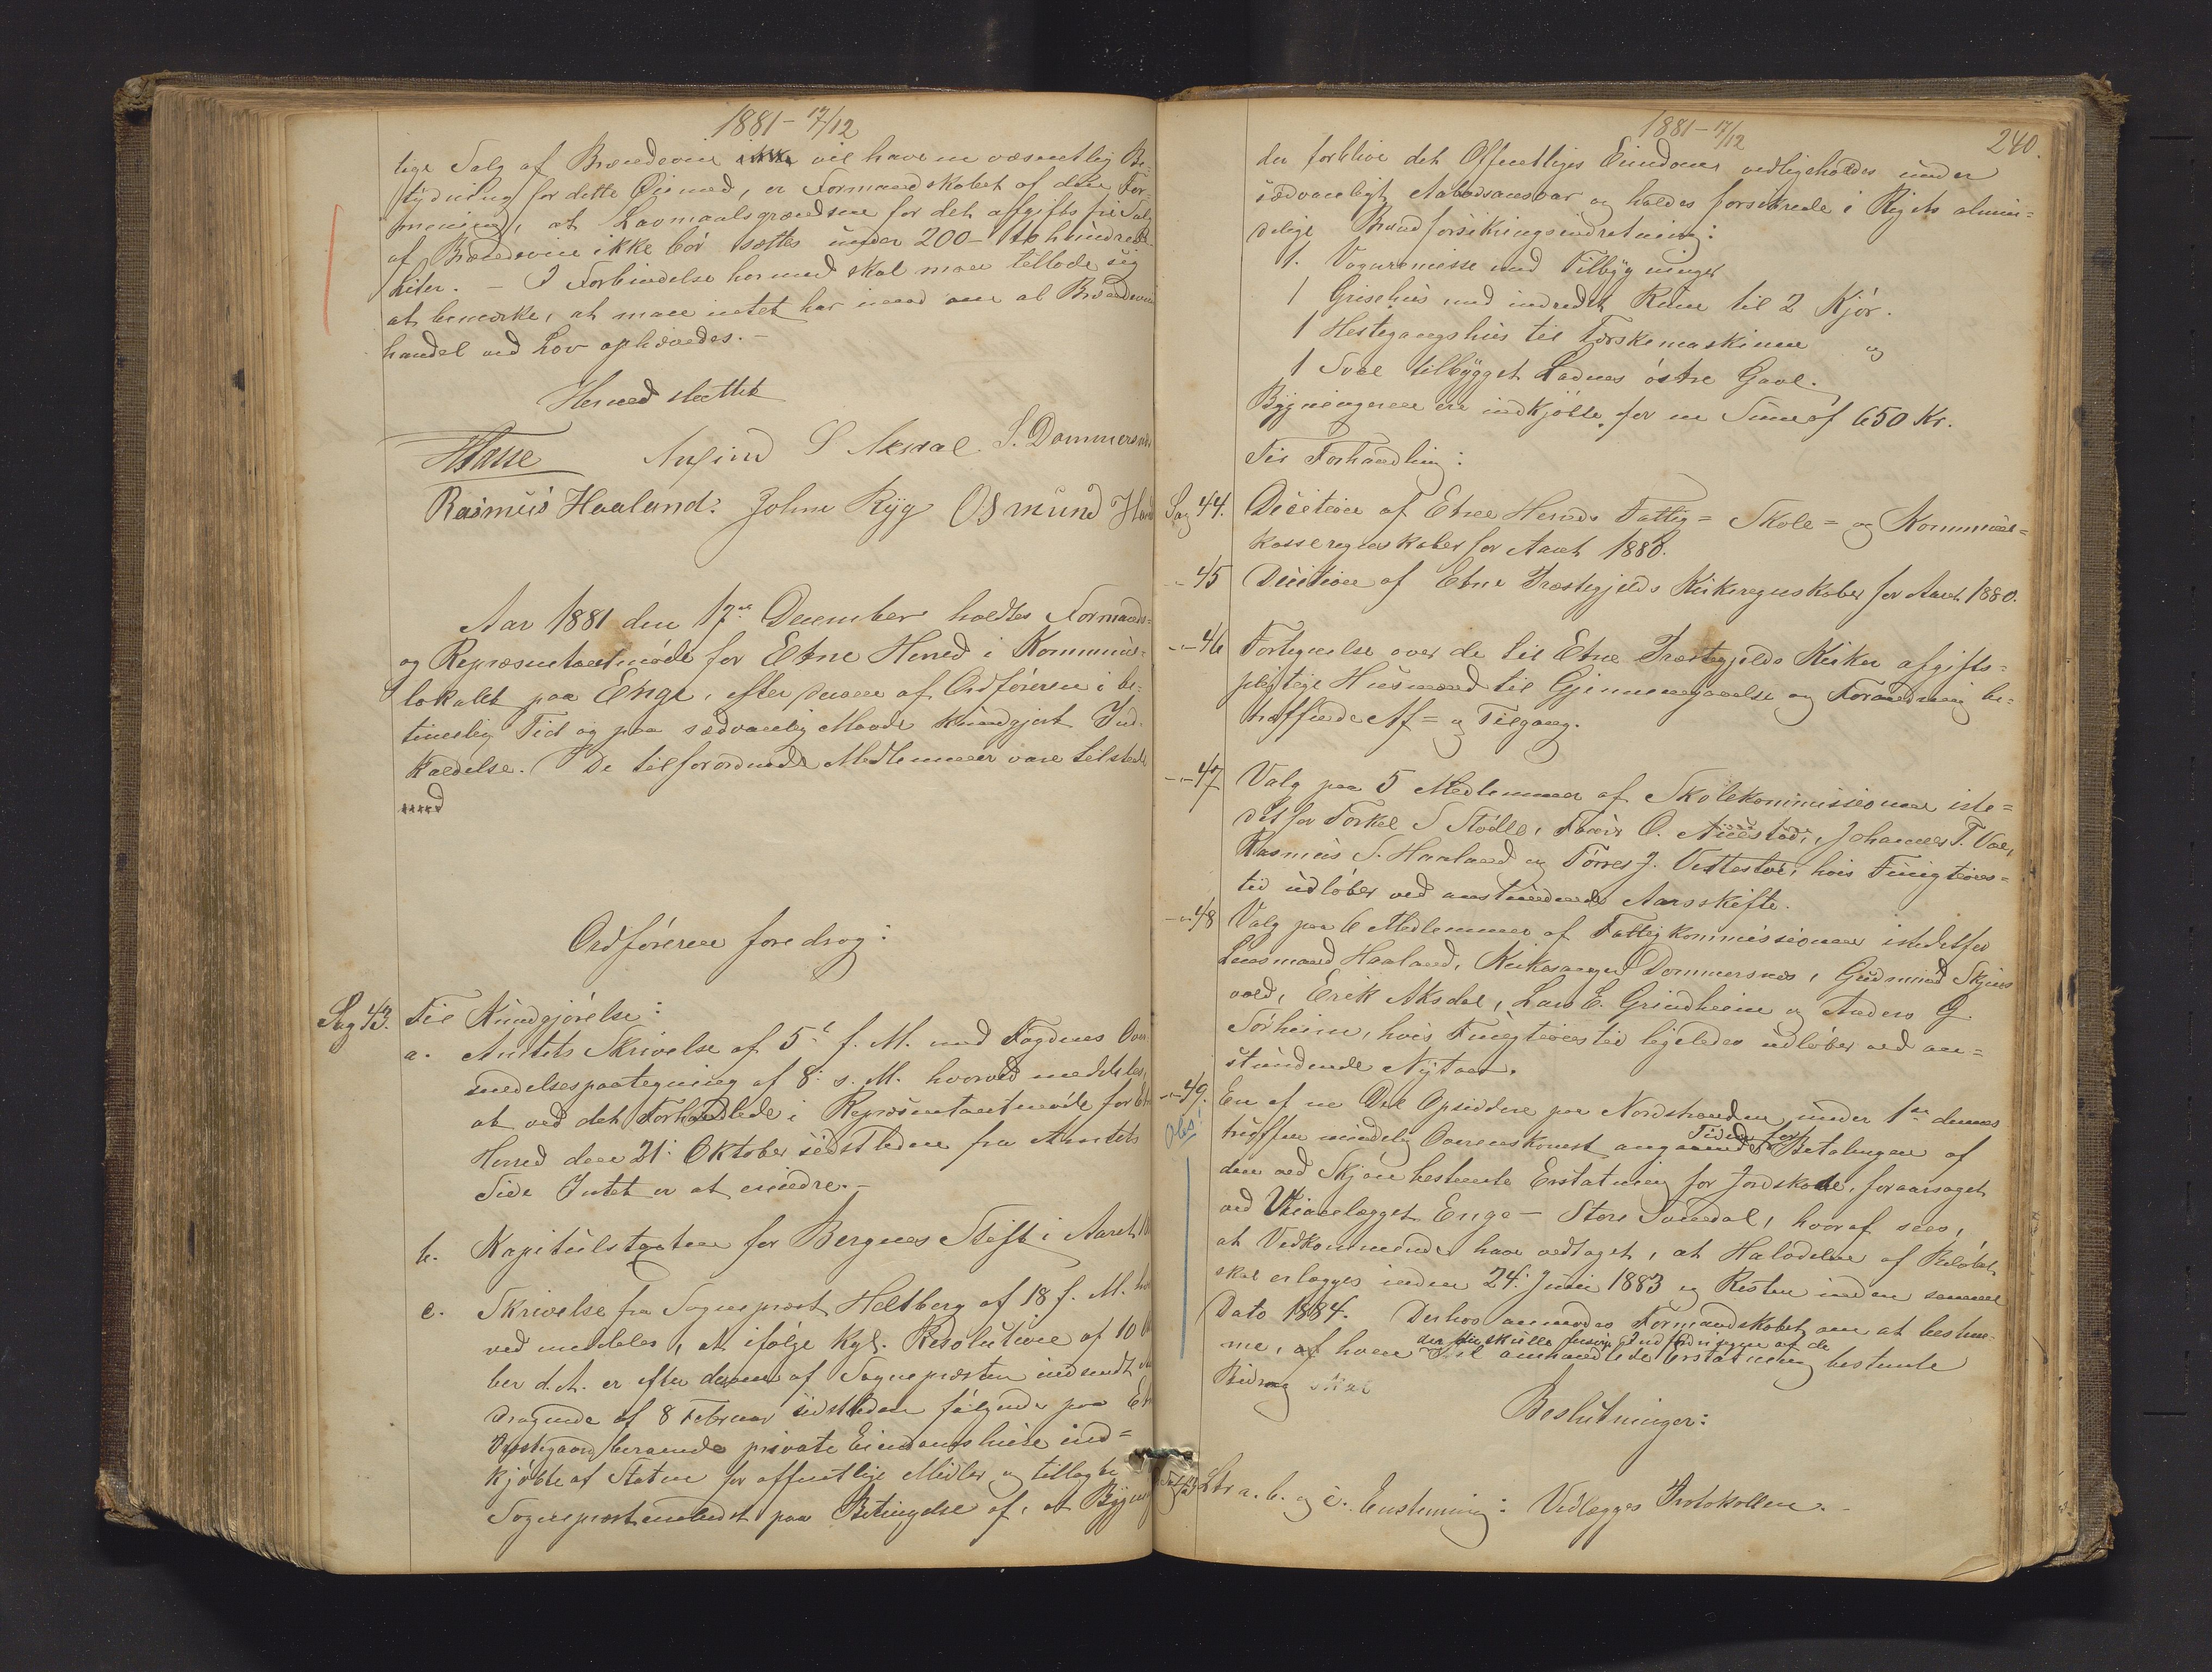 1881 - 17/12
lige Salg af Brændevin ikke vil have en væsentlig Be-
tydning for dette Øiemed, er Formandskabet af den For-
mening, at Lavmaalsgrændsen for det afgiftsfrie Salg
af Brændevin ikke bør sættes under 200 - to hundrede
Liter. - I Forbindelse hermed skal man tillade sig
at bemærke, at man intet har imod om al Brændevins
handel ved Lov ophævedes. -
Hermed sluttet
Arfind S Aksdal. S. Dommersnæs
Rasmus Haaland: Johne Ryg Osmund
Aar 1881 den 17de December holdtes Formands-
og Repræsentantmøde for Etne Herred i Kommune-
lokalet paa Enge, efter at Ordføreren i be-
timelig Tid og paa sædvanlig Maade kundgjort Ind-
kaldelse. De tilforordnede Medlemmer vare tilstede
med
Ordføreren foredrog:
Sag 43. Til Kundgjørelse:
a. Amtets Skrivelse af 5te f. M. med Fogdens Over
sendelsespaategning af 8. s. M. hvorved meddeles,
at ved det Forhandlede i Repræsentantmøde for Etne
Herred den 21. Oktober sidstleden fra Amtets
Side Intet er at erindre. -
b. Kapitulstaxten for Bergens Stift i Aaret
c. Skrivelse fra Sogneprest Heltberg af 18 f. M. hvor
ved meddeles, at ifølge Kgl. Resolution af 10
ber d. A. er efter derom af Sognepresten indsendt An
dragende af 8 Februar sidstleden følgende paa Etne
Prestegaard beroende private Eiendomshuse ind=
kjøbte af Staten for offentlige Midler og tillagte
Sogneprestembedet paa Betingelse af, at Bygnin
1881 - 17/12
240.
der forblive det Offentliges Eiendom vedligeholdes under
sædvanligt Aabodsansvar og holdes forsikrede i Rigets almin=
delige Brandforsikringsindretning:
1. Vognremisse med Tilbygninger
1 Grisehus med indredet Rum til 2 Kjør.
1 Hestegangshus til Tærskemaskinen og
1 Sval tilbygget Ladens østre Gavl.
Bygningerne ere indkjøbte for en Sum af 650 Kr.
Til Forhandling:
Sag 44. Decision af Etne Herreds Fattig= Skole= og Kommune=
kasseregnskaber for Aaret 1880.
-"- 45 Decision af Etne Præstegjelds Kirkeregnskaber for Aaret 1880.
-"- 46 Fortegnelse over de til Etne Præstegjelds Kirker afgifts=
pligtige Husmænd til Gjennemgaaelse og Forandring be=
træffende Af= og Tilgang.
-"- 47 Valg paa 5 Medlemmer af Skolekommissionen iste=
detfor Torkel S Stødle, O. Johannes T. Vae,
Rasmus S. Haaland og Tørres J. hvis Fungtions=
tid udløber ved anstundende Aarsskifte.
-"- 48 Valg paa 6 Medlemmer af Fattigkommissionen istedetfor
Lensmand Haaland, Kirkesanger Dommersnæs, Gudmund Skjens
vold, Erik Aksdal, Lars E. Grindheim og Anders G.
Sørheim, hvis Fungtionstid ligeledes udløber ved an=
stundende Nytaar.
-"- 49. En af en Del Opsiddere paa Nordstranden under 1ste dennes
Obs!
truffen mindelig Overenskomst angaaende Tiden for Betalingen af
den ved Skjøn bestemte Erstatning for Jordskade, foraarsaget
ved Veianlægget Enge - Store Sundal, hvoraf sees,
at Vedkommende have vedtaget, at Halvdelen af Beløbet
skal erlægges inden 24. Juni 1883 og Resten inden samme
Dato 1884. Derhos anmodes Formandskabet om at bestem-
me, af hvem der skulle Inddrivningen af de
til omhandlede Erstatning bestemte
Bidrag skal
Beslutninger:
Sag 43 Ltr a. b. og c. Enstemmig: Vedlægges Protokollen. -